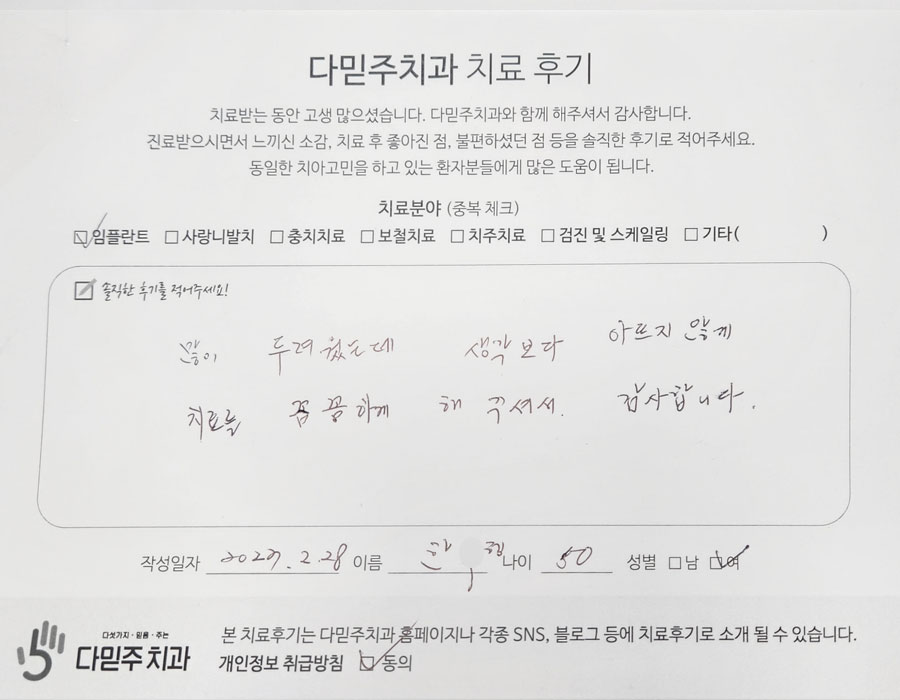 다믿주치과 치료 후기
치료받는 동안 고생 많으셨습니다. 다믿주치과와 함께 해주셔서 감사합니다.
진료받으시면서 느끼신 소감, 치료 후 좋아진 점, 불편하셨던 점 등을 솔직한 후기로 적어주세요.
동일한 치아고민을 하고 있는 환자분들에게 많은 도움이 됩니다.
치료분야 (중복 체크)
☑임플란트 □사랑니발치 □충치치료 □보철치료 □치주치료 □검진 및 스케일링 □기타( )
솔직한 후기를 적어주세요!
많이 두려웠는데 생각보다 아프지 않게
치료를 꼼꼼하게 해 주셔서. 감사합니다.
작성일자 2.28 이름 한 나이 50 성별 □남 ☑여
다섯가지·믿음·주는
다믿주치과
본 치료후기는 다믿주치과 홈페이지나 각종 SNS, 블로그 등에 치료후기로 소개 될 수 있습니다.
개인정보 취급방침 ☑동의